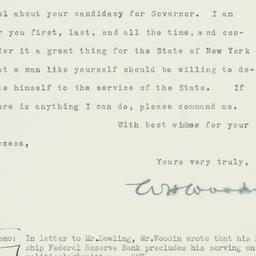 el about your candidacy for Governor. I am
r you first, last, and all the time, and con-
der it a great thing for the State of New York
at a man like yourself should be willing to de-
te himself to the service of the State. If
ere is anything I can do, please command me.
With best wishes for your
ccess,
Yours very truly,
WHWoodin
emo: In letter to Mr.Dowling, Mr.Woodin wrote that his
ship Federal Reserve Bank precludes his serving on